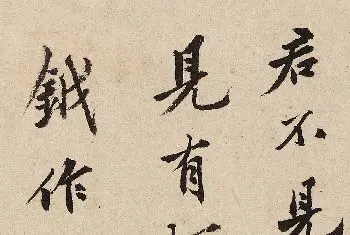 君不見
見有
鉞作